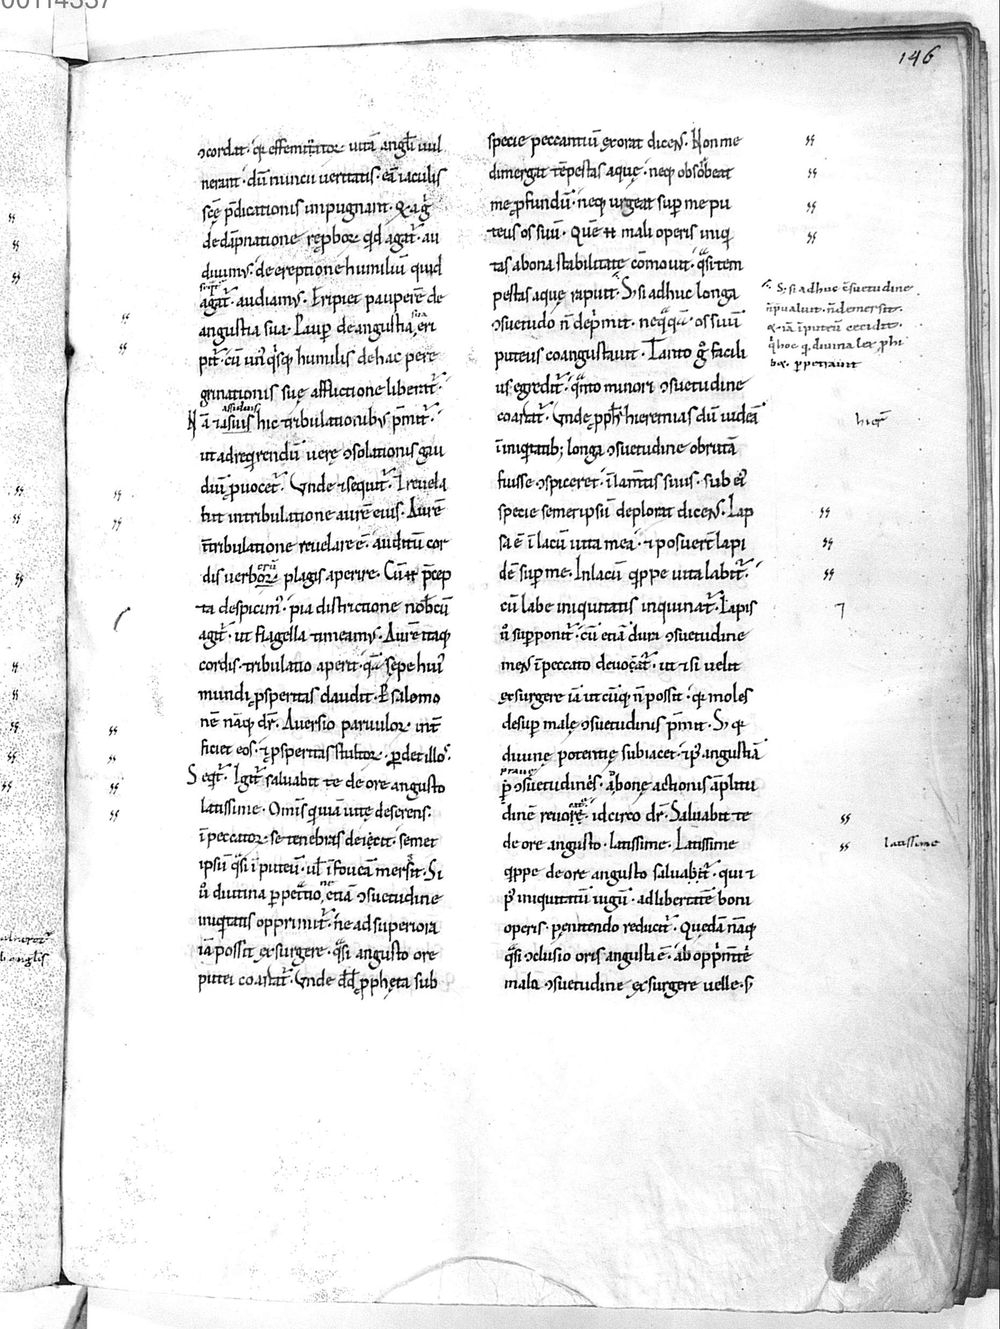 146
ↄcordat· q̄ effeminator vitā angli uul
nerant· dū nuncii ueritatis· eā iaculis
sc̄ę p̄dicationis inpugnant· & ag̃
de dāpnatione reꝓbor̄ qd agat̃· au
diuimꝰ· de ereptione humiliū quid
agat̃· audiamꝰ· Eripiet pauperē de
angustia sua· Paup̄ de angustia eri
pit̃· cū unꝰ qisq; humilis de hac pere
grinationis suę afflictione liberat̃·
assiduis
Nā & iasiuis hic tribulationibꝰ p̄mit̃·
ut ad reqirendū uerę ↄsolationis gau
diū ꝓuocet̃· Vnde & sequit̃· Et reuela
bit in tribulatione aurē eius· Aurē
ī tribulatione reuelare ē· auditū cor
dis uerbor̄ plagis aperire· Cū eī p̄cep
ta despicimꝰ· pia districtione nobcū
agit̃· ut flagella timeamꝰ· Aurē itaq;
cordis· tribulatio aperit· quā sępe huiꝰ
mundi ꝓsperitas claudit· P̄ salomo
nē nāq; dr̄· Auersio paruulor̄ int̃
ficiet eos· & ꝓsperitas stultor̄· ꝑdet illos·
Seqt̃· Igit̃ saluabit te de ore angusto
latissime· Omīs qi uiā uitę deserens·
ī peccator̄ se tenebris deiecit· semet
ipsū qasi ī puteū· ul̄ ī foueā mersit· Si
u̇ diutina ꝑpetratione etiā ↄsuetudine
iniqitatis opprimit̃· ne ad superiora
iā possit exsurgere· qasi angusto ore
putei coartat̃· Vnde dd̄ ꝓpheta sub
specie peccantiū exorat dicens· Non me
dimergat tēpestas aquę· neq; obsorbeat
me ꝓfundū· neq; urgeat sup̄ me pu
teus os suū· Quē eī mali operis iniqi
tas a bona stabilitate cōmouit· qasi tem
pestas aquę rapuit· S; si adhuc longa
ↄsuetudo n̄ dep̄mit· neqaqā os suū
puteus coangustauit· Tanto g̊ facili
us egredit̃· qanto minori ↄsuetudine
coartat̃· Vnde ꝓph̄ hieremias dū uideā
ī iniqitatib; longa ↄsuetudine obrutā
fuisse ↄspiceret· ī lam̄tis suis· sub eiꝰ
specie semetipsū deplorat dicens· Lap
sa ē ī lacū uita mea· & posuer̄t lapi
dē sup̄ me· In lacū qippe uita labit̃·
cū labe iniquitatis inquinat̃· Lapis
u̇ sup̄ponit̃· cū etiā dura ↄsuetudine
mens ī peccato deuorat̃· ut & si uelit
exsurgere iā utcūq; n̄ possit· q̄ moles
desup̄ malę ↄsuetudinis p̄mit· S; q̄
diuinę potentię subiacet· & pꝰ angustiā
prauę
ↄsuetudinis· a bonę actionis āplitu
dinē reuocare· idcirco dr̄· Saluabit te
de ore angusto· latissime· Latissime
qippe de ore angusto saluabit̃· qui &
pꝰ iniquitatū iugū· ad libertatē boni
operis· penitendo reducit̃· Quędā nāq;
qasi ↄclusio oris angusti ē· ab oppm̄tē
mala ↄsuetudine exsurgere uelle· s;
S; si adhuc ↄsuetudine
n̄ p̄ualuit· n̄ demersit·
& iā ī puteū cecidit·
latissime